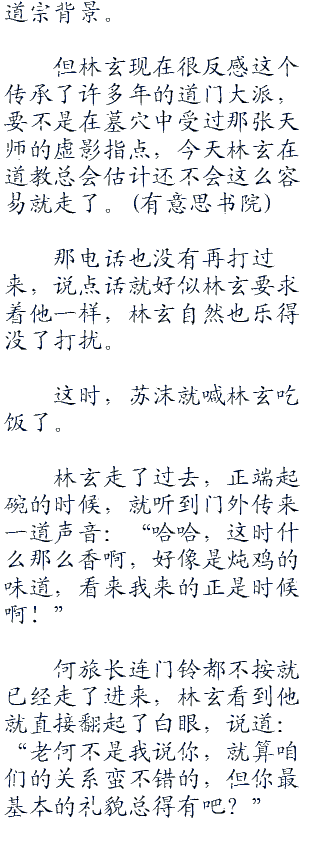 道宗背景。
但林玄现在很反感这个
传承了许多年的道门大派，
要不是在墓穴中受过那张天
师的虚影指点，今天林玄在
道教总会估计还不会这么容
易就走了。(有意思书院)
那电话也没有再打过
来，说点话就好似林玄要求
着他一样，林玄自然也乐得
没了打扰。
这时，苏沫就喊林玄吃
饭了。
林玄走了过去，正端起
碗的时候，就听到门外传来
一道声音：“哈哈，这时什
么那么香啊，好像是炖鸡的
味道，看来我来的正是时候
啊！”
何旅长连门铃都不按就
已经走了进来，林玄看到他
就直接翻起了白眼，说道：
“老何不是我说你，就算咱
们的关系蛮不错的，但你最
基本的礼貌总得有吧？”